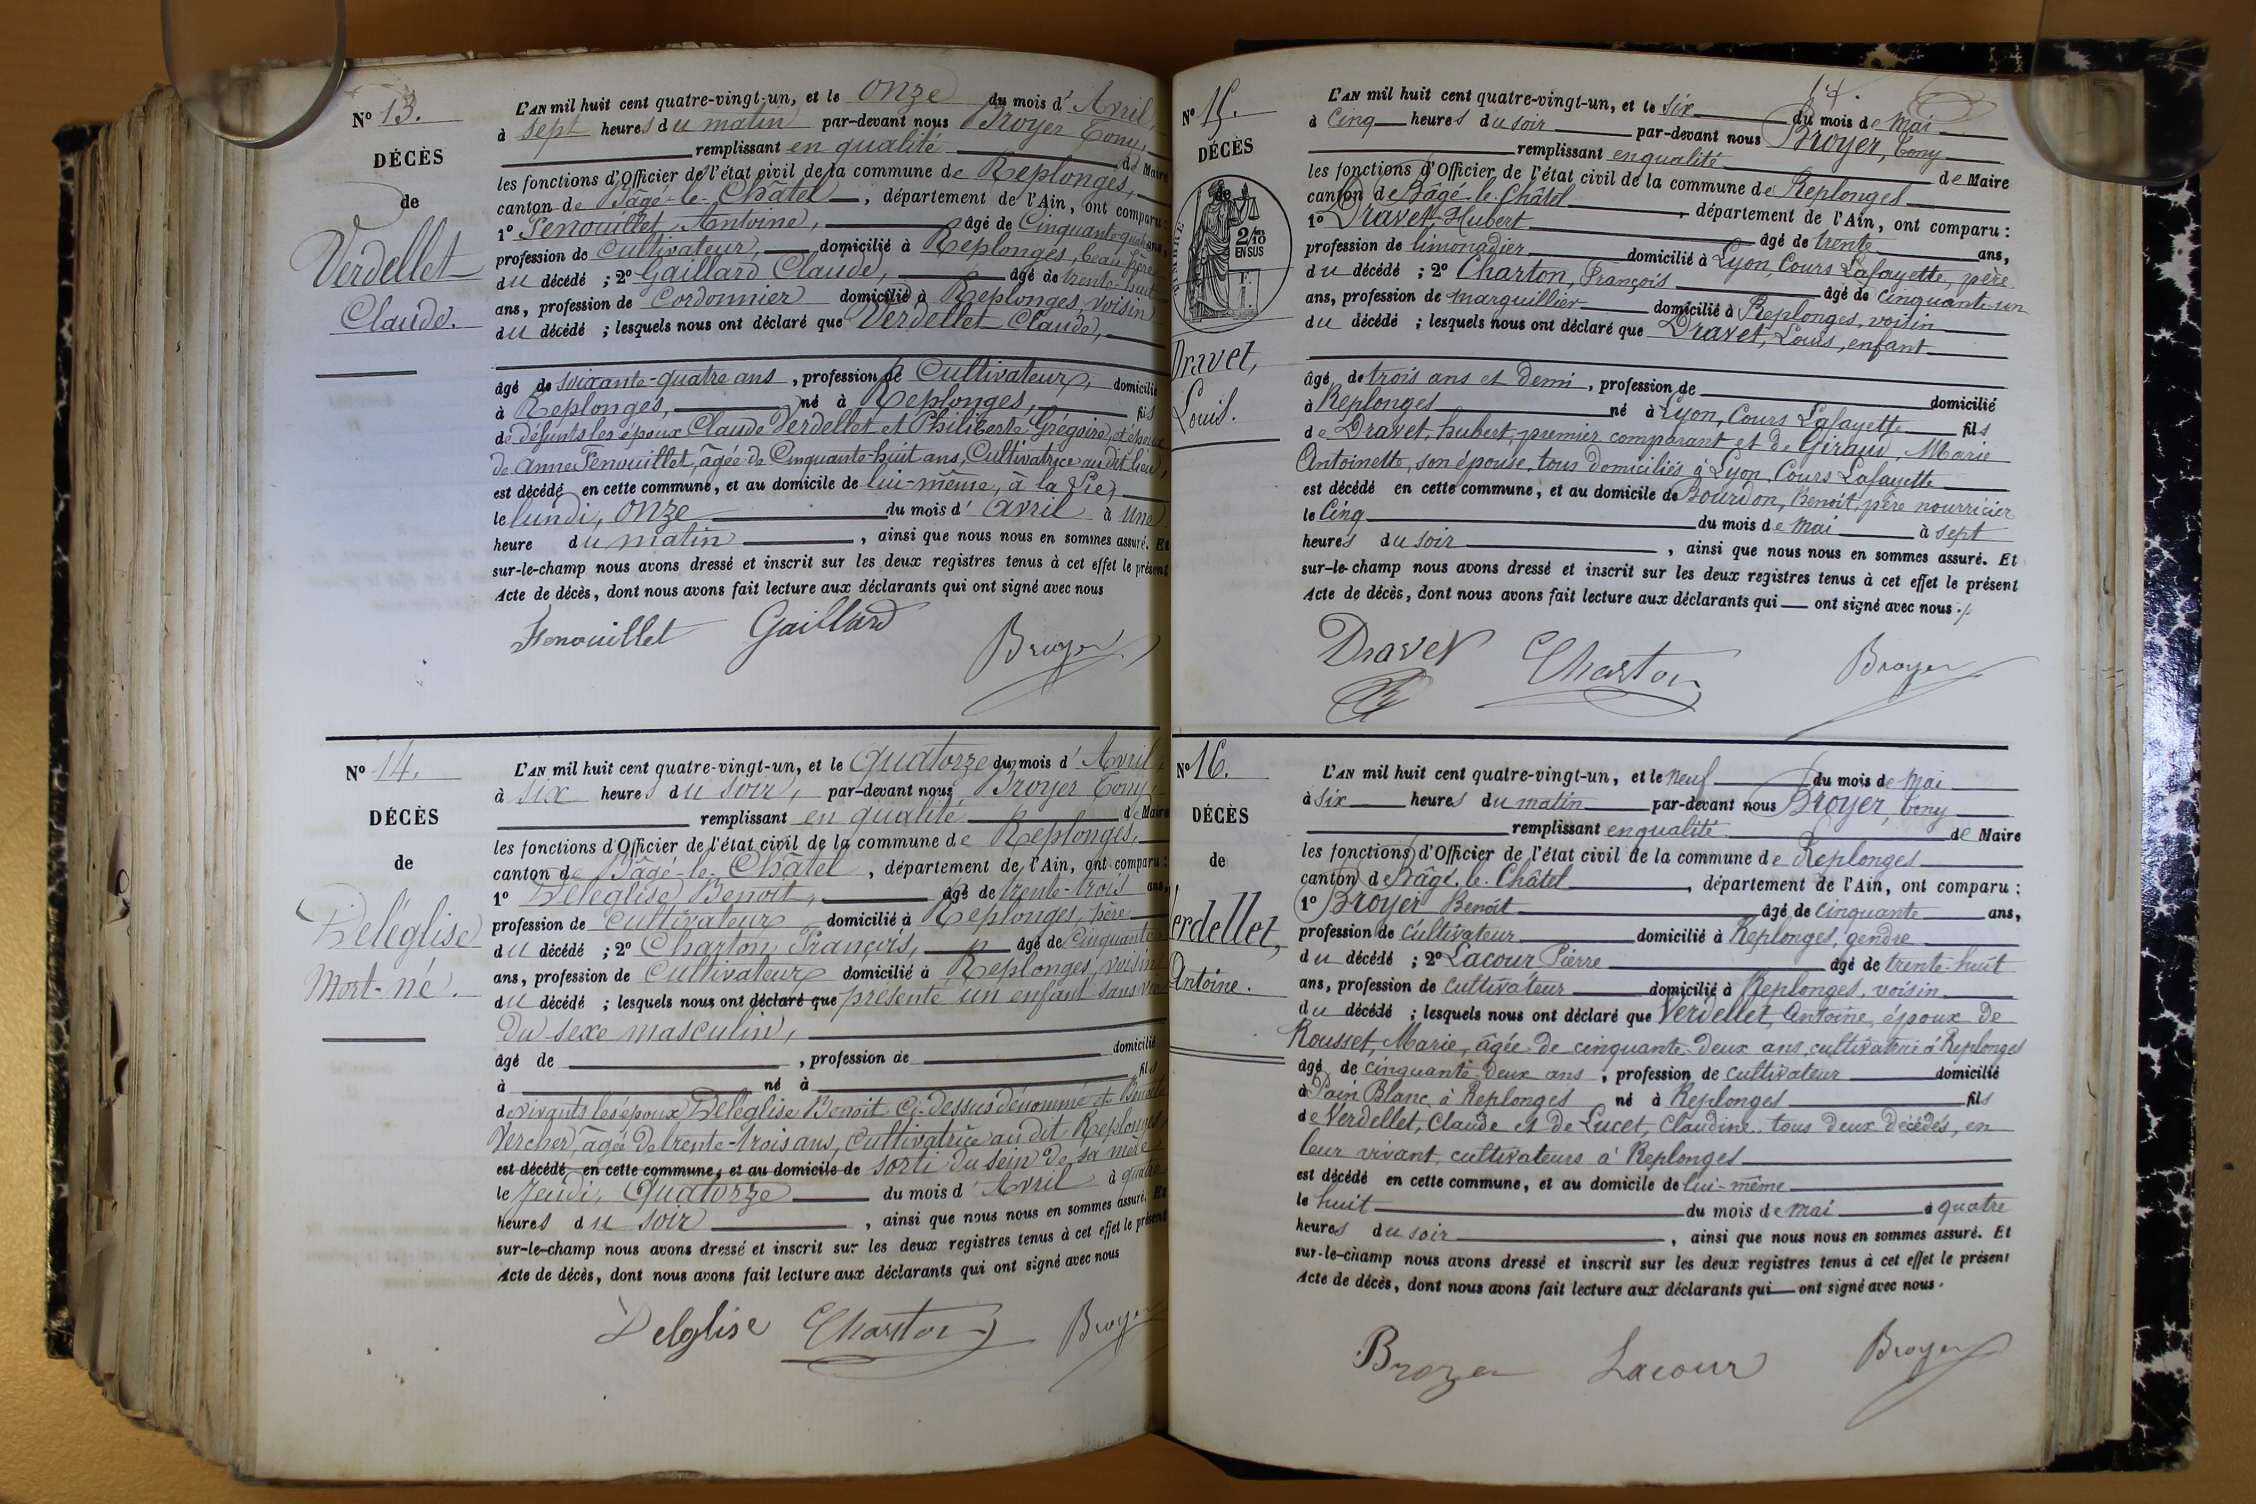 N° 13.
DÉCÈS
de
Verdellet
Claude.
L'AN mil huit cent quatre-vingt-un, et le onze du mois d'Avril,
à sept heures du matin par-devant nous Broyer Tony,
remplissant en qualité de Maire
les fonctions d'Officier de l'état civil de la commune de Replonges,
canton de Bâgé-le-Châtel, département de l'Ain, ont comparu :
1° Fenouillet Antoine, âgé de Cinquante-quatre ans,
profession de Cultivateur, domicilié à Replonges, beau-frère
du décédé ; 2° Gaillard Claude, âgé de trente-huit
ans, profession de Cordonnier domicilié à Replonges, voisin
du décédé ; lesquels nous ont déclaré que Verdellet Claude,
âgé de soixante-quatre ans, profession de Cultivateur, domicilié
à Replonges, né à Replonges, fils
de défunts les époux Claude Verdellet et Philiberte Grégoire, et époux
de Anne Fenouillet, âgée de Cinquante-huit ans, Cultivatrice au dit lieu,
est décédé en cette commune, et au domicile de lui-même, à la
le lundi, onze du mois d'avril à une
heure du matin, ainsi que nous nous en sommes assuré. Et
sur-le-champ nous avons dressé et inscrit sur les deux registres tenus à cet effet le présent
Acte de décès, dont nous avons fait lecture aux déclarants qui ont signé avec nous
Fenouillet Gaillard Broyer
N° 14.
DÉCÈS
de
Deléglise
Mort-né.
L'AN mil huit cent quatre-vingt-un, et le quatorze du mois d'Avril,
à six heures du soir, par-devant nous Broyer Tony,
remplissant en qualité de Maire
les fonctions d'Officier de l'état civil de la commune de Replonges,
canton de Bâgé-le-Châtel, département de l'Ain, ont comparu :
1° Deléglise Benoit, âgé de trente-trois ans,
profession de Cultivateur domicilié à Replonges, père
du décédé ; 2° Charton François, âgé de cinquante
ans, profession de Cultivateur domicilié à Replonges, voisin
du décédé ; lesquels nous ont déclaré que présenté un enfant sans vie
du sexe masculin,
âgé de , profession de domicilié
à né à fils
de vivants les époux Deléglise Benoit ci-dessus dénommé et
Vercher, âgée de trente-trois ans, Cultivatrice au dit Replonges,
est décédé en cette commune, et au domicile de sorti du sein de sa mère
le Jeudi, Quatorze du mois d'Avril à quatre
heures du soir, ainsi que nous nous en sommes assuré. Et
sur-le-champ nous avons dressé et inscrit sur les deux registres tenus à cet effet le présent
Acte de décès, dont nous avons fait lecture aux déclarants qui ont signé avec nous
Delglise Charton Broyer
14.
N° 15.
DÉCÈS
de
2/10
EN SUS
Dravet,
Louis.
L'AN mil huit cent quatre-vingt-un, et le six du mois de Mai
à cinq heures du soir par-devant nous Broyer, Tony
remplissant en qualité de Maire
les fonctions d'Officier de l'état civil de la commune de Replonges
canton de Bâgé-le-Châtel, département de l'Ain, ont comparu :
1° Dravet Hubert âgé de trente ans,
profession de limonadier domicilié à Lyon, Cours Lafayette, père
du décédé ; 2° Charton, François âgé de cinquante-un
ans, profession de marguillier domicilié à Replonges, voisin
du décédé ; lesquels nous ont déclaré que Dravet, Louis, enfant
âgé de trois ans et demi, profession de domicilié
à Replonges né à Lyon, Cours Lafayette fils
de Dravet, hubert, premier comparant et de Giraud, Marie
Antoinette, son épouse, tous domiciliés à Lyon, Cours Lafayette
est décédé en cette commune, et au domicile de Bourdon, Benoît, père nourricier
le Cinq du mois de Mai à sept
heures du soir, ainsi que nous nous en sommes assuré. Et
sur-le-champ nous avons dressé et inscrit sur les deux registres tenus à cet effet le présent
Acte de décès, dont nous avons fait lecture aux déclarants qui ont signé avec nous.
Dravet Charton Broyer
N° 16.
DÉCÈS
de
Verdellet,
Antoine.
L'AN mil huit cent quatre-vingt-un, et le neuf du mois de Mai
à six heures du matin par-devant nous Broyer, Tony
remplissant en qualité de Maire
les fonctions d'Officier de l'état civil de la commune de Replonges
canton de Bâgé-le-Châtel, département de l'Ain, ont comparu :
1° Broyer Benoît âgé de cinquante ans,
profession de cultivateur domicilié à Replonges, gendre
du décédé ; 2° Lacour Pierre âgé de trente-huit
ans, profession de cultivateur domicilié à Replonges, voisin
du décédé ; lesquels nous ont déclaré que Verdellet, Antoine, époux de
Rousset, Marie, âgée de cinquante-deux ans, cultivatrice à Replonges
âgé de cinquante-deux ans, profession de cultivateur domicilié
à Pain Blanc à Replonges né à Replonges fils
de Verdellet, Claude et de Lucet, Claudine, tous deux décédés, en
leur vivant, cultivateurs à Replonges
est décédé en cette commune, et au domicile de lui-même
le huit du mois de mai à quatre
heures du soir, ainsi que nous nous en sommes assuré. Et
sur-le-champ nous avons dressé et inscrit sur les deux registres tenus à cet effet le présent
Acte de décès, dont nous avons fait lecture aux déclarants qui ont signé avec nous.
Broyer Lacour Broyer